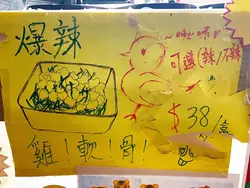 爆辣
~嫩啲!!
可選(辣/不辣)
$38/盒
雞!軟!骨!